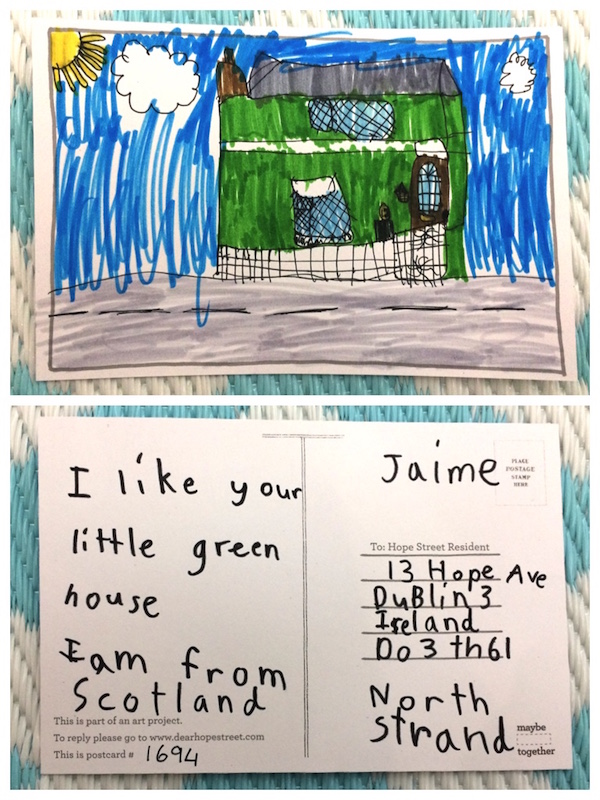 I like your
little green
house
I am from
Scotland
This is part of an art project.
To reply please go to www.dearhopestreet.com
This is postcard # 1694
Jaime
PLACE
POSTAGE
STAMP
HERE
To: Hope Street Resident
13 Hope Ave
DuBlin 3
Ireland
Do3 th61
North
strand
maybe
together